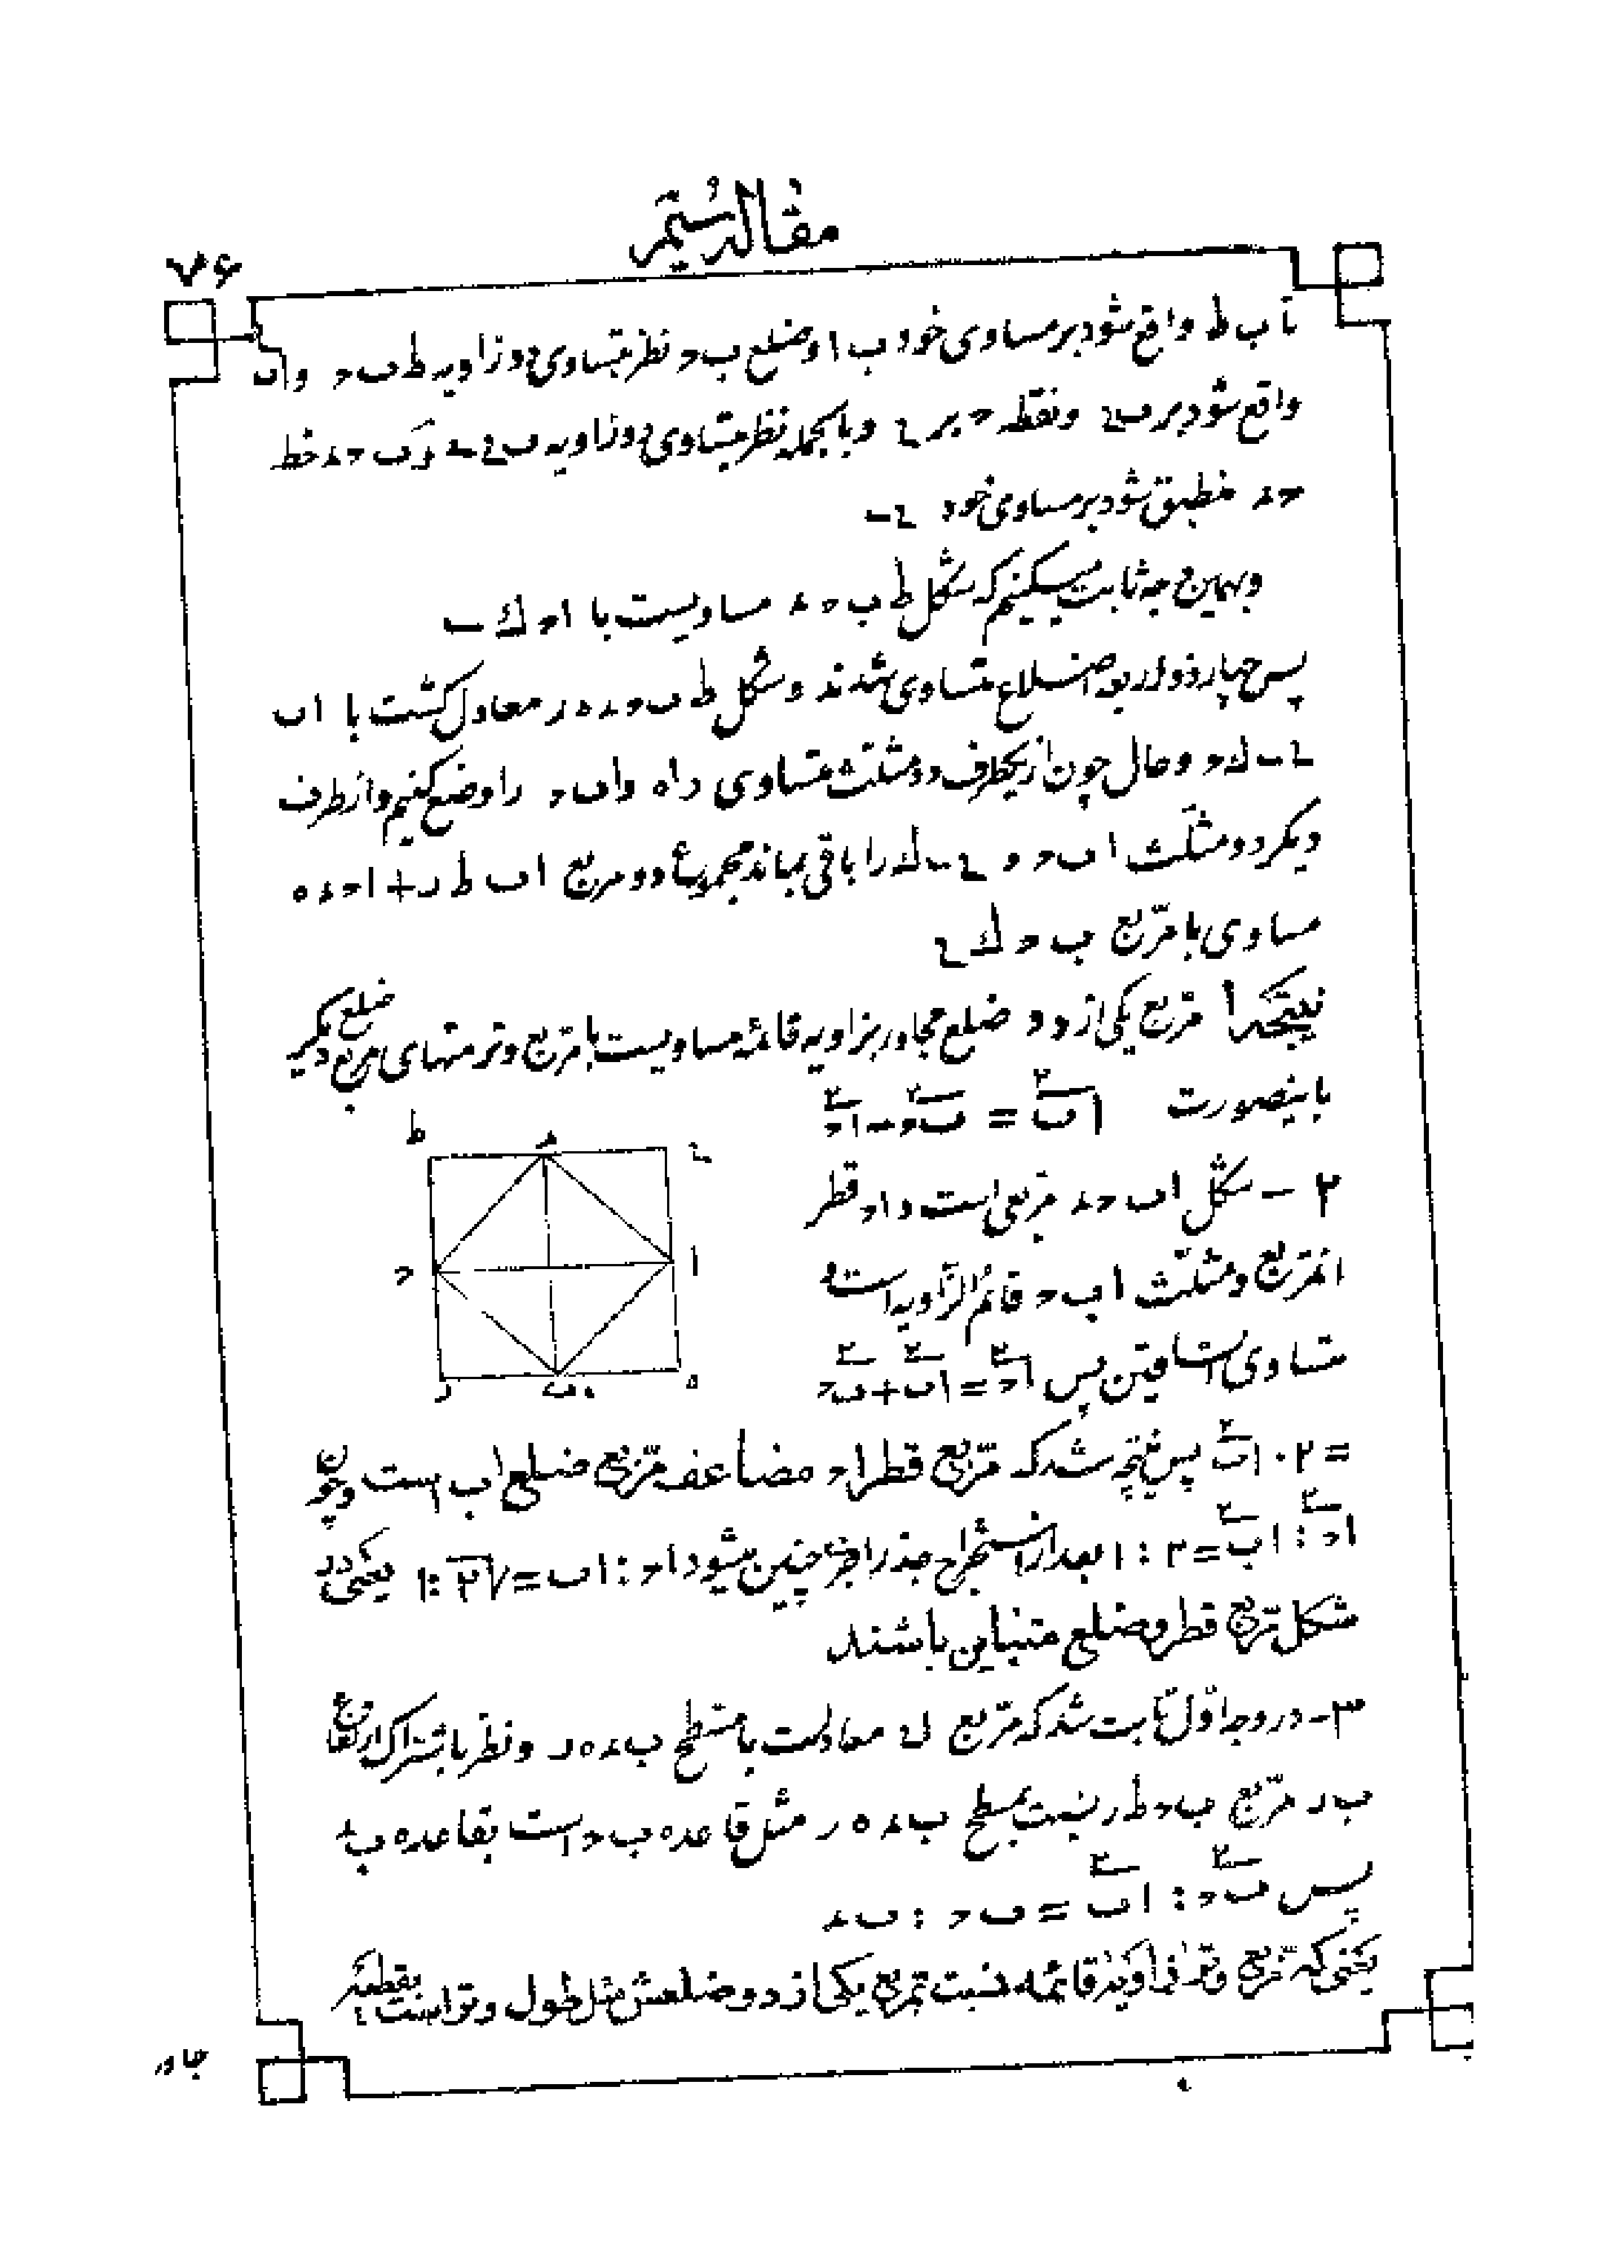 مقاله سیم
۷۶
تا ب ط واقع شود بر مساوی خود ب ا و ضلع ب ح نظر بتساوی دو زاویه ط ب ح و اب
واقع شود بر ب ی و نقطه ح بر ی و بالجمله نظر بتساوی دو زاویه ب ی و ب ح د خط
ح د منطبق شود بر مساوی خود
و بهمین وجه ثابت میکنیم که شکل ط ب ح د مساویست با ا ح ك
پس چهار ذو اربعه اضلاع متساوی شدند و شکل ط ب ح د ه ر معادل گشت با ا ب
و حال چون از یکطرف دو مثلث متساوی د ا ه و ا ب ح را وضع کنیم و از طرف
دیگر دو مثلث ا ب ح و را باقی بماند مجموع دو مربع ا ب ط ر + ا ح د ه
مساوی با مربع ب ح ك ی
نتیجه ا مربع یکی از دو ضلع مجاور بزاویه قائمه مساویست با مربع وتر منهای مربع ضلع دیگر
باینصورت ا ب۲ = ب ح۲ - ا ح۲
ط
د
ح
ا
ر
ب
ه
۲ - شکل ا ب ح د مربعی است و ا ح قطر
انمربع و مثلث ا ب ح قائم الزاویه است و
متساوی الساقین پس ا ح۲ = ا ب۲ + ب ح۲
= ۲ . ا ب۲ پس نتیجه شد که مربع قطر ا ح مضاعف مربع ضلع ا ب است و چون
ا ح۲ : ا ب۲ = ۲ : ۱ بعد از استخراج جذر اجزا چنین میشود ا ح : ا ب = √۲ : ۱ یعنی در
شکل مربع قطر و ضلع متباین باشند
۳- در وجه اول ثابت شد که مربع معادلست با مسطح ب د ه ر و نظر باشتراک ارتفاع
ب ر مربع ب ح ط ر بنسبت بمسطح ب د ه ر مثل قاعده ب ح است بقاعده ب د
پس ب ح۲ : ا ب۲ = ب ح : ب د
یعنی که مربع وتر زاویه قائمه نسبت بمربع یکی از دو ضلعش مثل طول وتر است بقطعه
مجاور